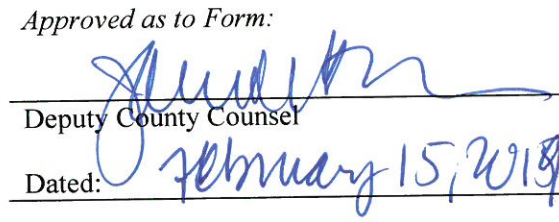 Approved as to Form:
Deputy County Counsel
Dated: February 15, 2018